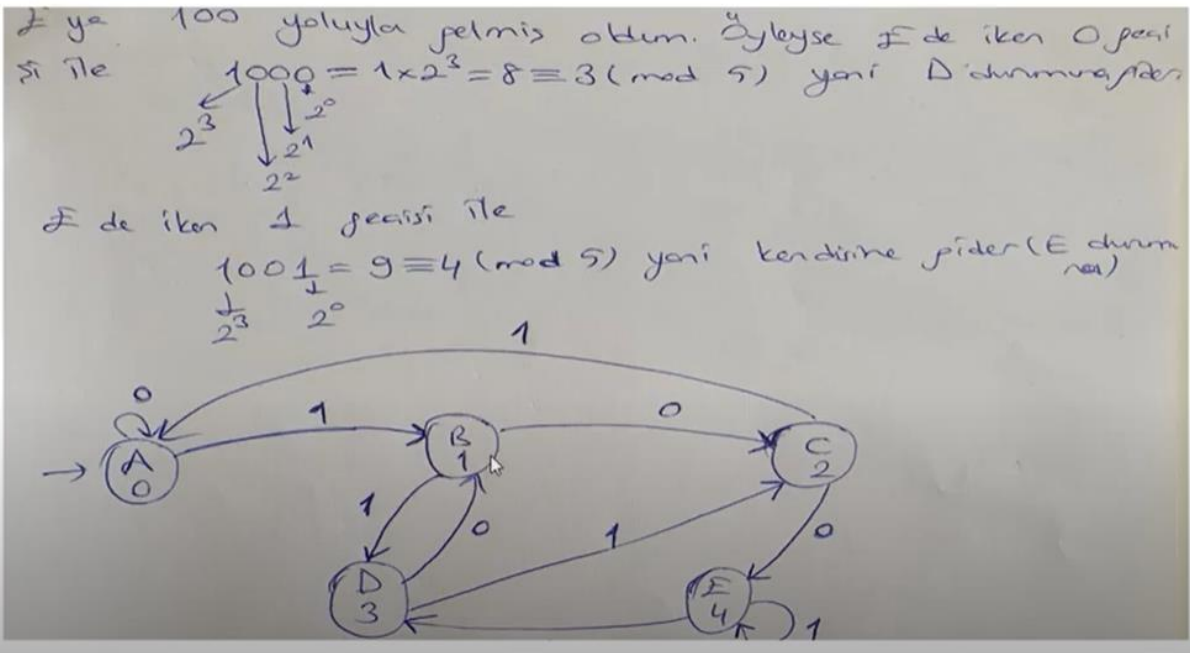 E ye 100 yoluyla gelmiş oldum. Öyleyse E de iken 0 geçi
şi ile 1000 = 1x2³ = 8 ≡ 3 (mod 5) yani D durumuna gider.
2³ 2² 2¹ 2⁰
E de iken 1 geçişi ile
1001 = 9 ≡ 4 (mod 5) yani kendisine gider (E durumu
na)
2³ 2⁰
1
0
1
0
A
0
B
1
C
2
1
0
1
0
D
3
E
4
1